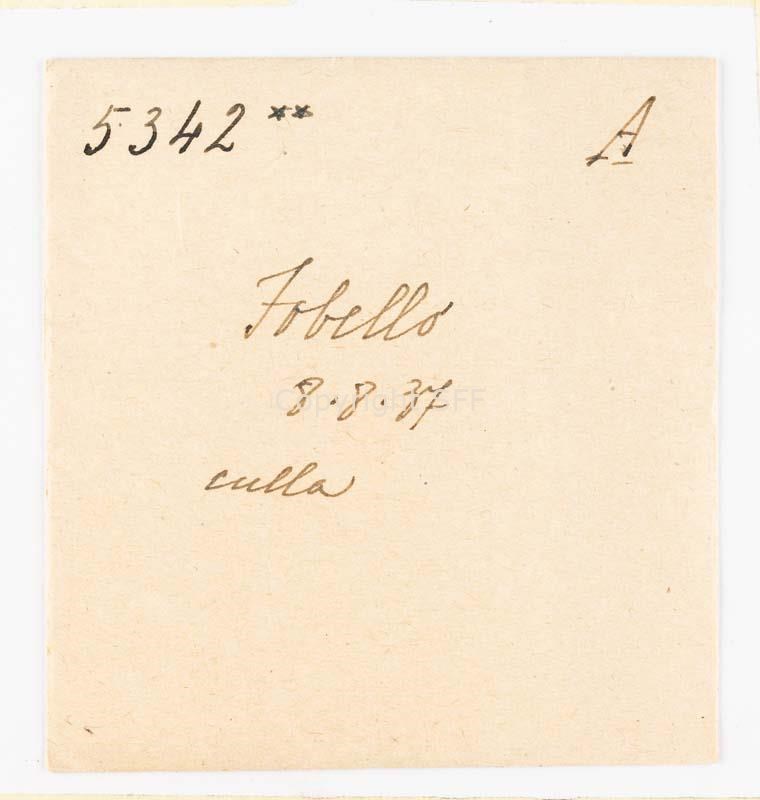 5342** A
Fobello
8.8.37
Copyright SFF
culla